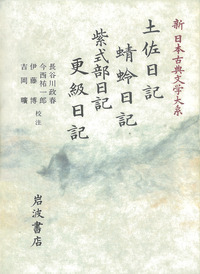 新日本古典文学大系
土佐日記
蜻蛉日記
紫式部日記
更級日記
長谷川政春
今西祐一郎
伊藤博
吉岡曠
校注
岩波書店